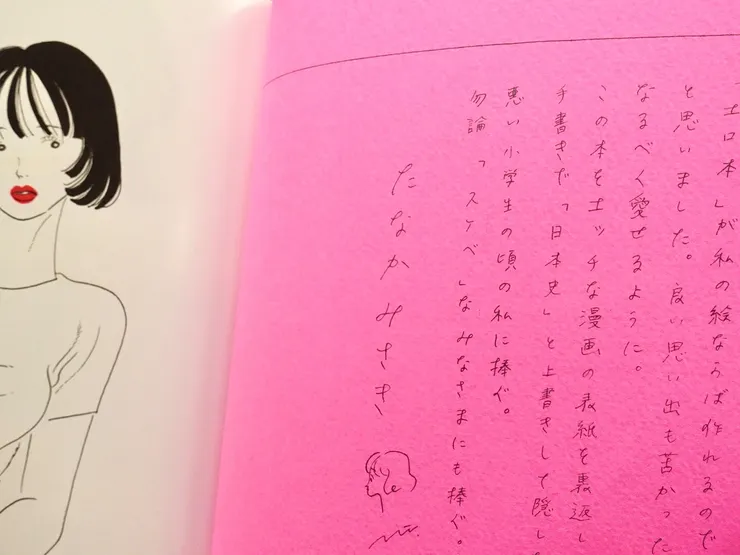 「エロ本」が私の絵ならば作れるのでは
と思いました。良い思い出も苦かった
なるべく愛せるように。
この本をエッチな漫画の表紙を裏返し
手書きで「日本史」と上書きして隠し
悪い小学生の頃の私に捧ぐ。
勿論「スケベ」なみなさまにも捧ぐ。
たなかみさき